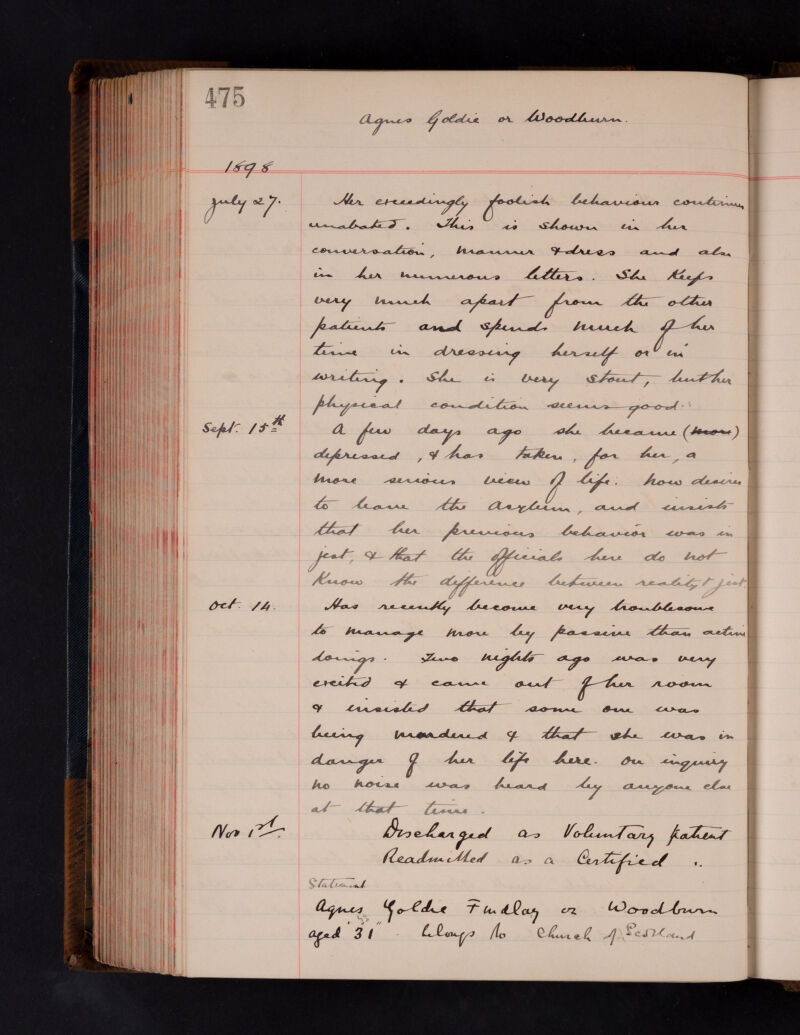 475
Agnes Goldie or Woodburn.
1898
July 27. Her exceedingly foolish behaviour continues
unabated. This is shown in her
conversation, manner & dress and also
in her numerous letters. She keeps
very much apart from the other
patients and spends much of her
time in dressing herself or in
writing. She is very stout, but her
physical condition seems good.
Sept. 15th A few days ago she became (more)
depressed, & has taken, for her, a
more serious view of life. Now desires
to leave the Asylum, and insists
that her previous behavior was in
jest, & that the officials here do not
know the difference between reality & jest.
Oct. 14. Has recently become very troublesome
to manage more by passive than active
doings. Two nights ago was very
excited & came out of her room
& insisted that some one was
being murdered & that she was in
danger of her life here. On inquiry
no noise was heard by anyone else
at that time.
Nov 1st. Discharged as Voluntary patient
Readmitted as a Certified "
Statement
Agnes Goldie Findlay or Woodburn
aged 31 belongs to Church of Scotland